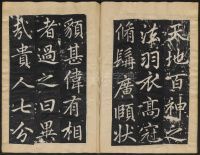 天地百神之
羽衣高冠
脩髯廣頤狀
䫉甚偉有相
者過之曰異
哉貴人七分